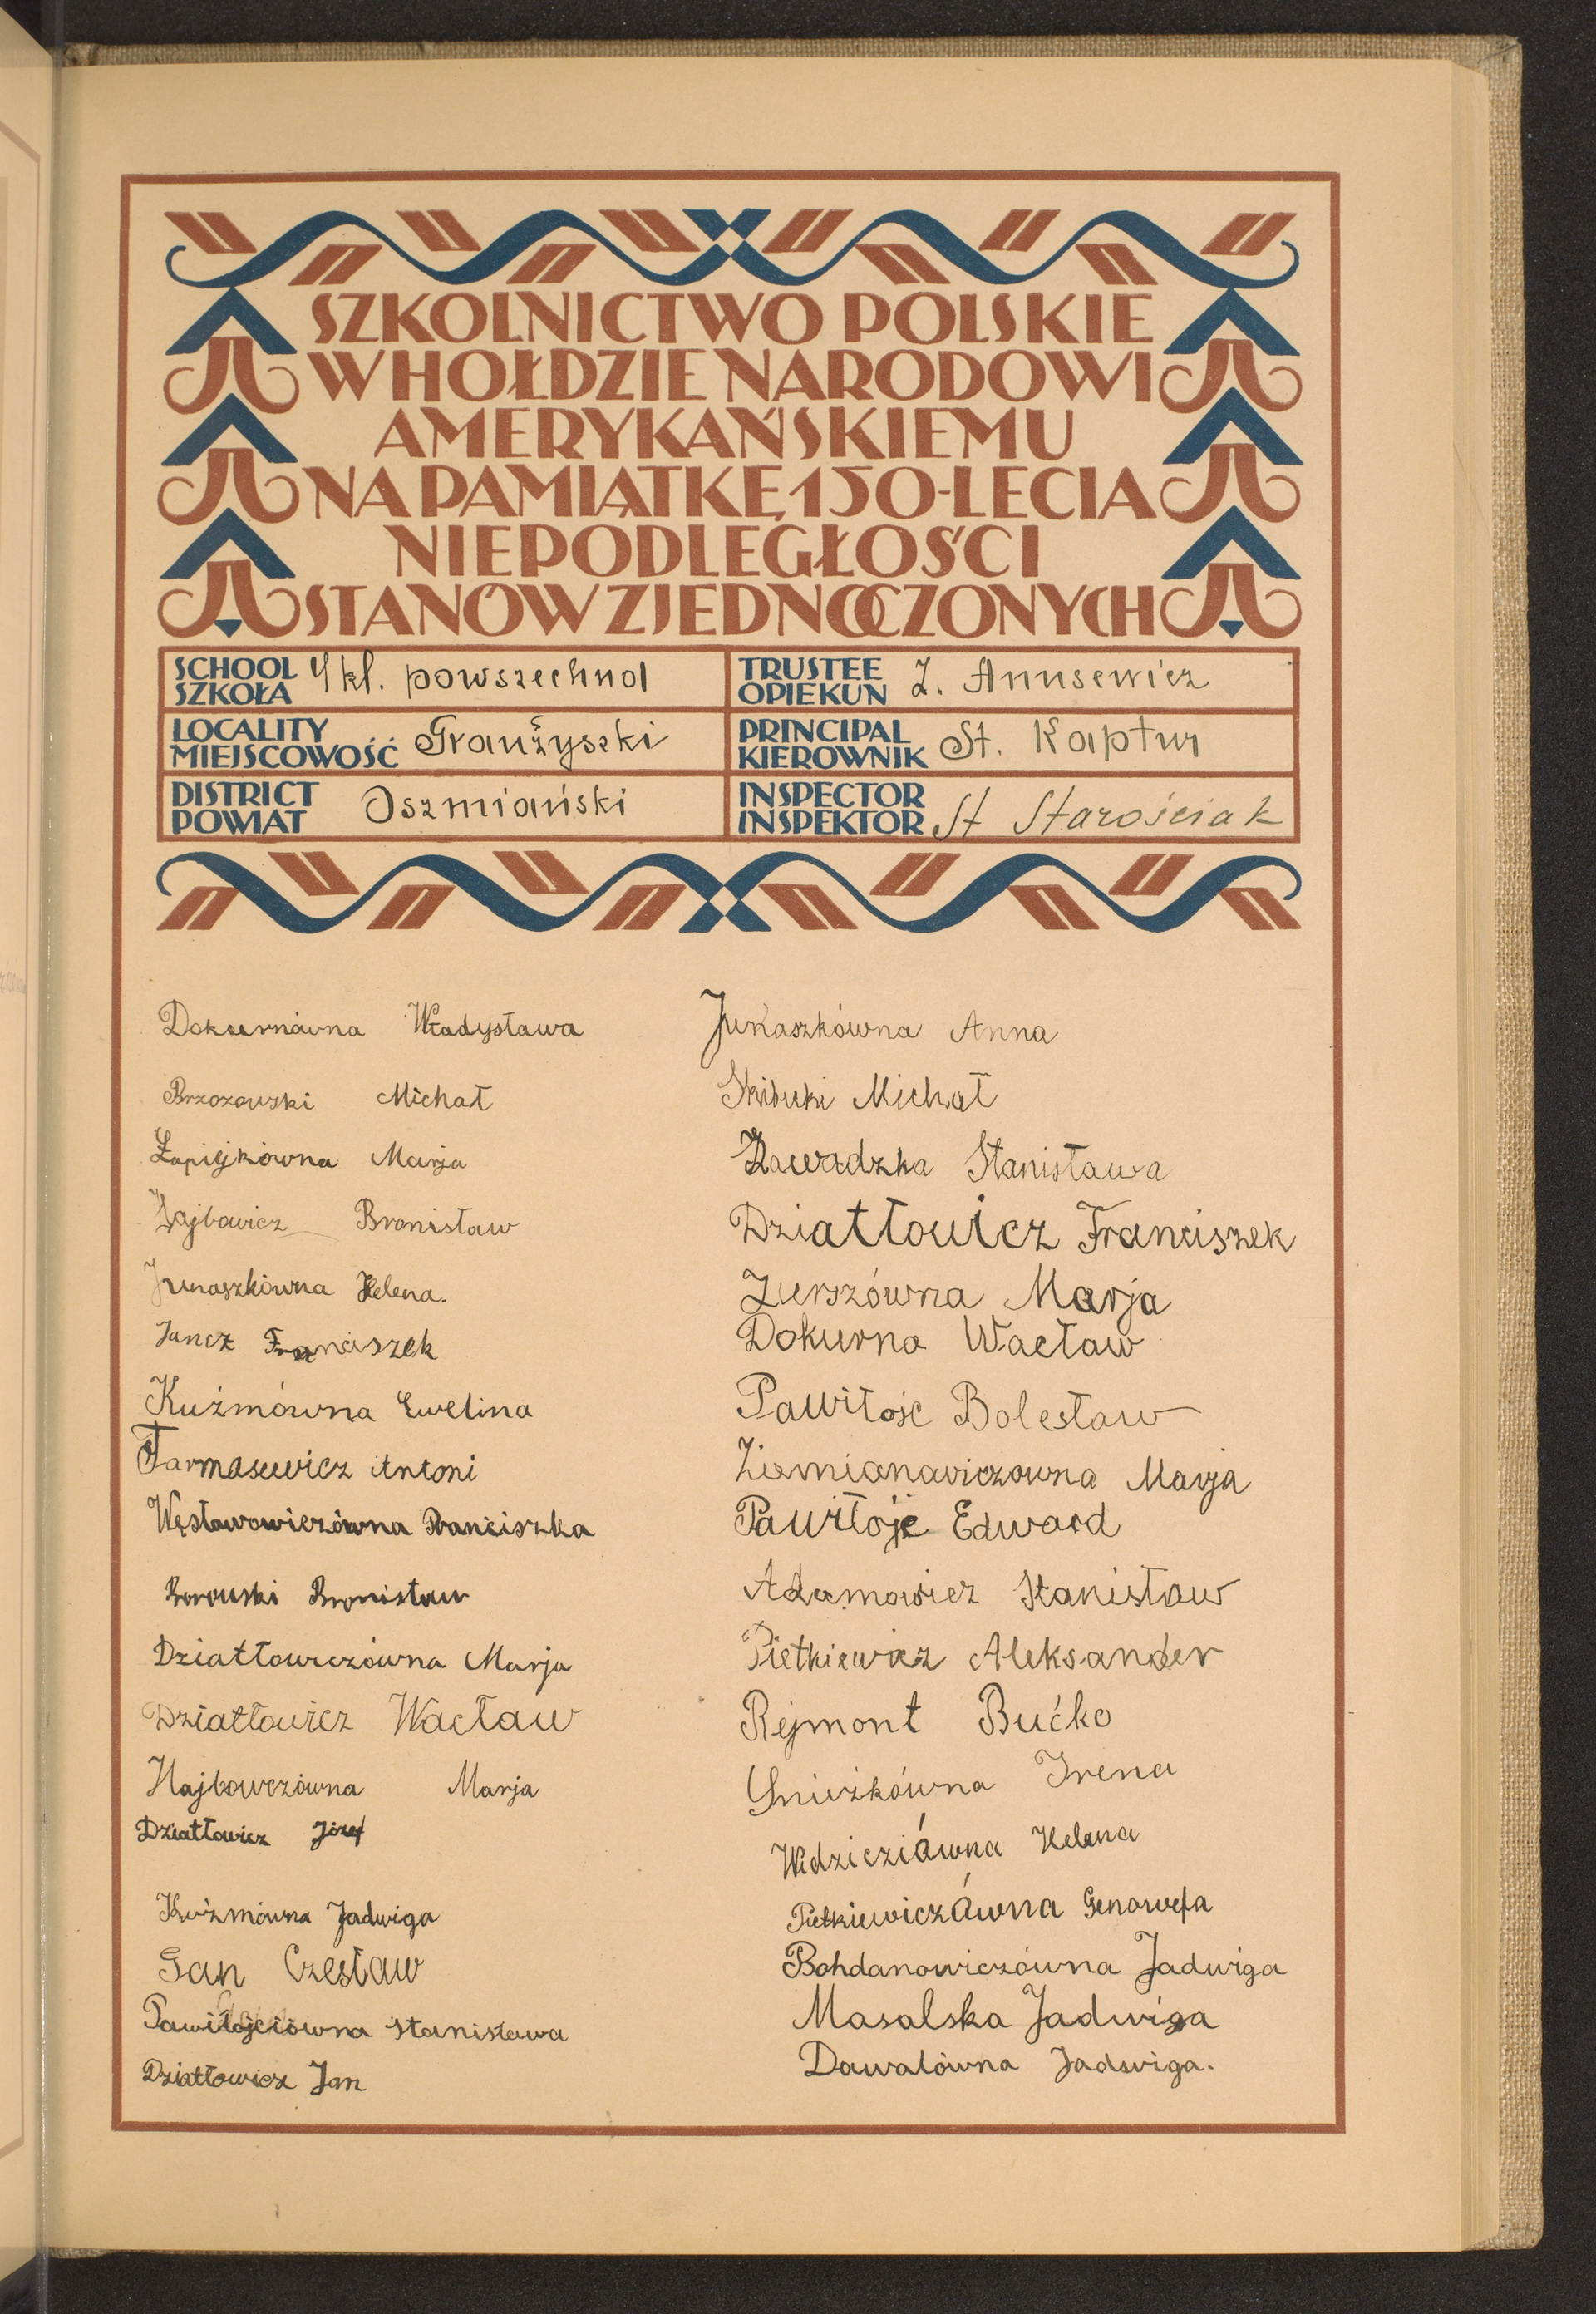 SZKOLNICTWO POLSKIE
W HOŁDZIE NARODOWI
AMERYKAŃSKIEMU
NA PAMIĄTKĘ 150-LECIA
NIEPODLEGŁOŚCI
STANÓW ZJEDNOCZONYCH
SCHOOL SZKOŁA 4 kl. powszechna
TRUSTEE OPIEKUN Z. Anusewicz
LOCALITY MIEJSCOWOŚĆ Graużyszki
PRINCIPAL KIEROWNIK St. Kaptur
DISTRICT POWIAT Oszmiański
INSPECTOR INSPEKTOR St Starościak
Dokurnówna Władysława
Brzozowski Michał
Łapiejkówna Marja
Hajbowicz Bronisław
Junaszkówna Helena.
Juncz Franciszek
Kuźmówna Ewelina
Tarmasewicz Antoni
Węsławowiczówna Franciszka
Borowski Bronisław
Działłowiczówna Marja
Działłowicz Wacław
Hajbowczówna Marja
Działłowicz Józef
Kuźmówna Jadwiga
Gan Czesław
Pawiłojciówna Stanisława
Działłowicz Jan
Junaszkówna Anna
Michał
Zawadzka Stanisława
Działłowicz Franciszek
Zierszówna Marja
Dokurno Wacław
Pawiłojć Bolesław
Ziemianowiczowna Marja
Pawiłojć Edward
Adamowicz Stanisław
Pietkiewicz Aleksander
Rejmont Bućko
Śnieżkówna Irena
Helena
Pietkiewiczówna Genowefa
Bohdanowiczówna Jadwiga
Masalska Jadwiga
Dawalówna Jadwiga.